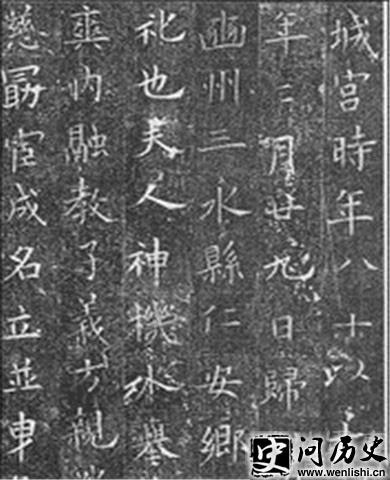 城宮時年八十以
年三月廿九日歸
豳州三水縣仁安鄉
礼也夫人神機外舉
爽內融教子義方親
慈勗宦成名立並申
史
问历史
www.wenlishi.cn